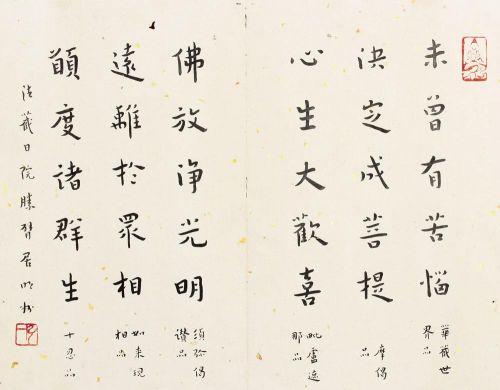 未曾有苦惱
華藏世
界品
決定成菩提
摩偈
品
心生大歡喜
毗盧遮
那品
佛放浄光明
須弥偈
讚品
遠離於眾相
如來現
相品
願度諸群生
十忍品